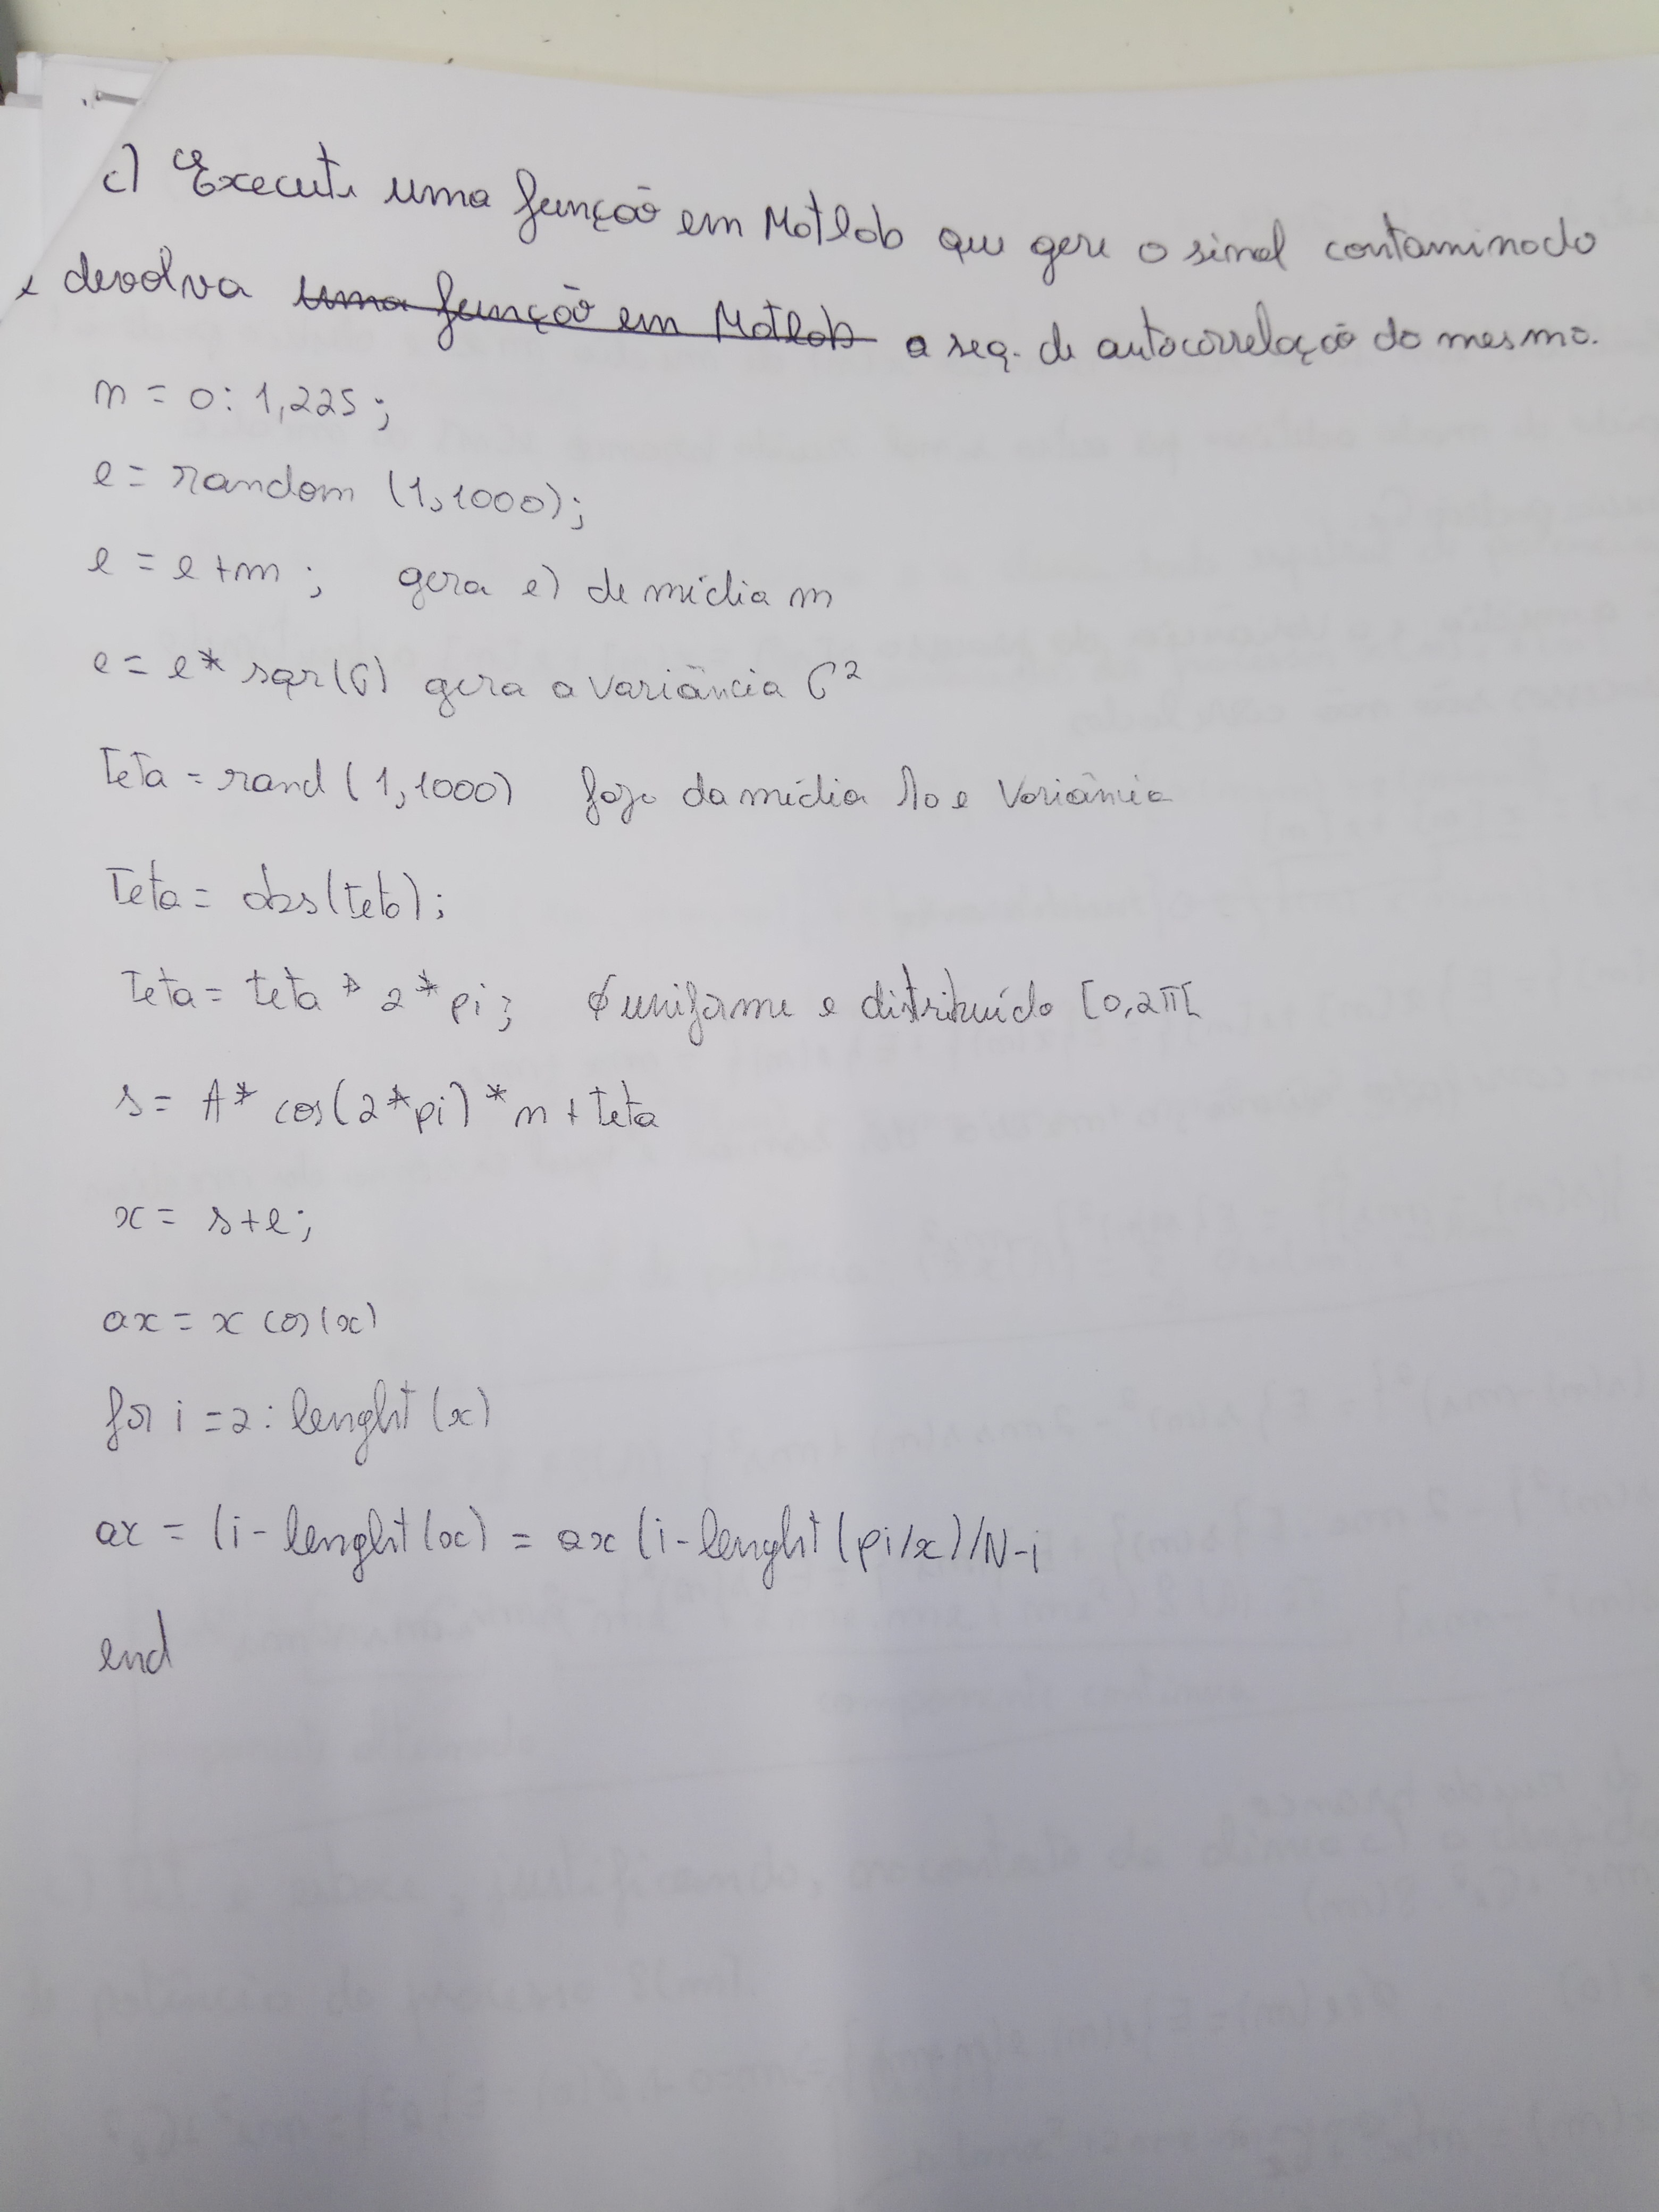 c) Execute uma função em Matlab que gere o sinal contaminado
e devolva uma função em Matlab a seq. de autocorrelação do mesmo.
n = 0:1,225;
e = random (1,1000);
e = e+m; gera e) de média m
e = e* sqr(σ) gera a variância σ²
Teta = rand (1,1000) da média e variância
Teta = abs(teta);
Teta = teta * 2*pi; ϕ uniforme e distribuído [0,2π[
s = A* cos(2*pi)*n+teta
x = s+e;
ax = x cos(x)
for i = 2: lenght (x)
ax = (i- lenght (x) = ax (i-lenght (pi/x)/N-i
end